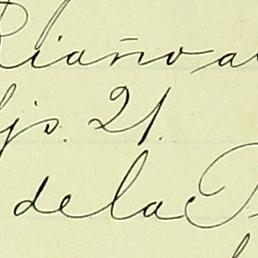 Riaño a
js. 21.
de la